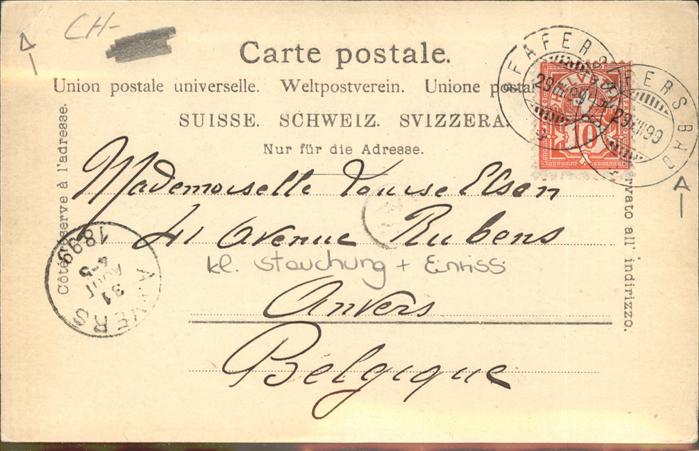 CH-
Carte postale.
Union postale universelle. Weltpostverein. Unione postale
SUISSE. SCHWEIZ. SVIZZERA.
Nur für die Adresse.
Côté réservé à l'adresse.
all' indirizzo.
10
29 VIII 99
Mademoiselle Louise Elsen
41 avenue Rubens
kl. Stauchung + Einriss
Anvers
Belgique
ANVERS
31
AOUT
4-5
1899